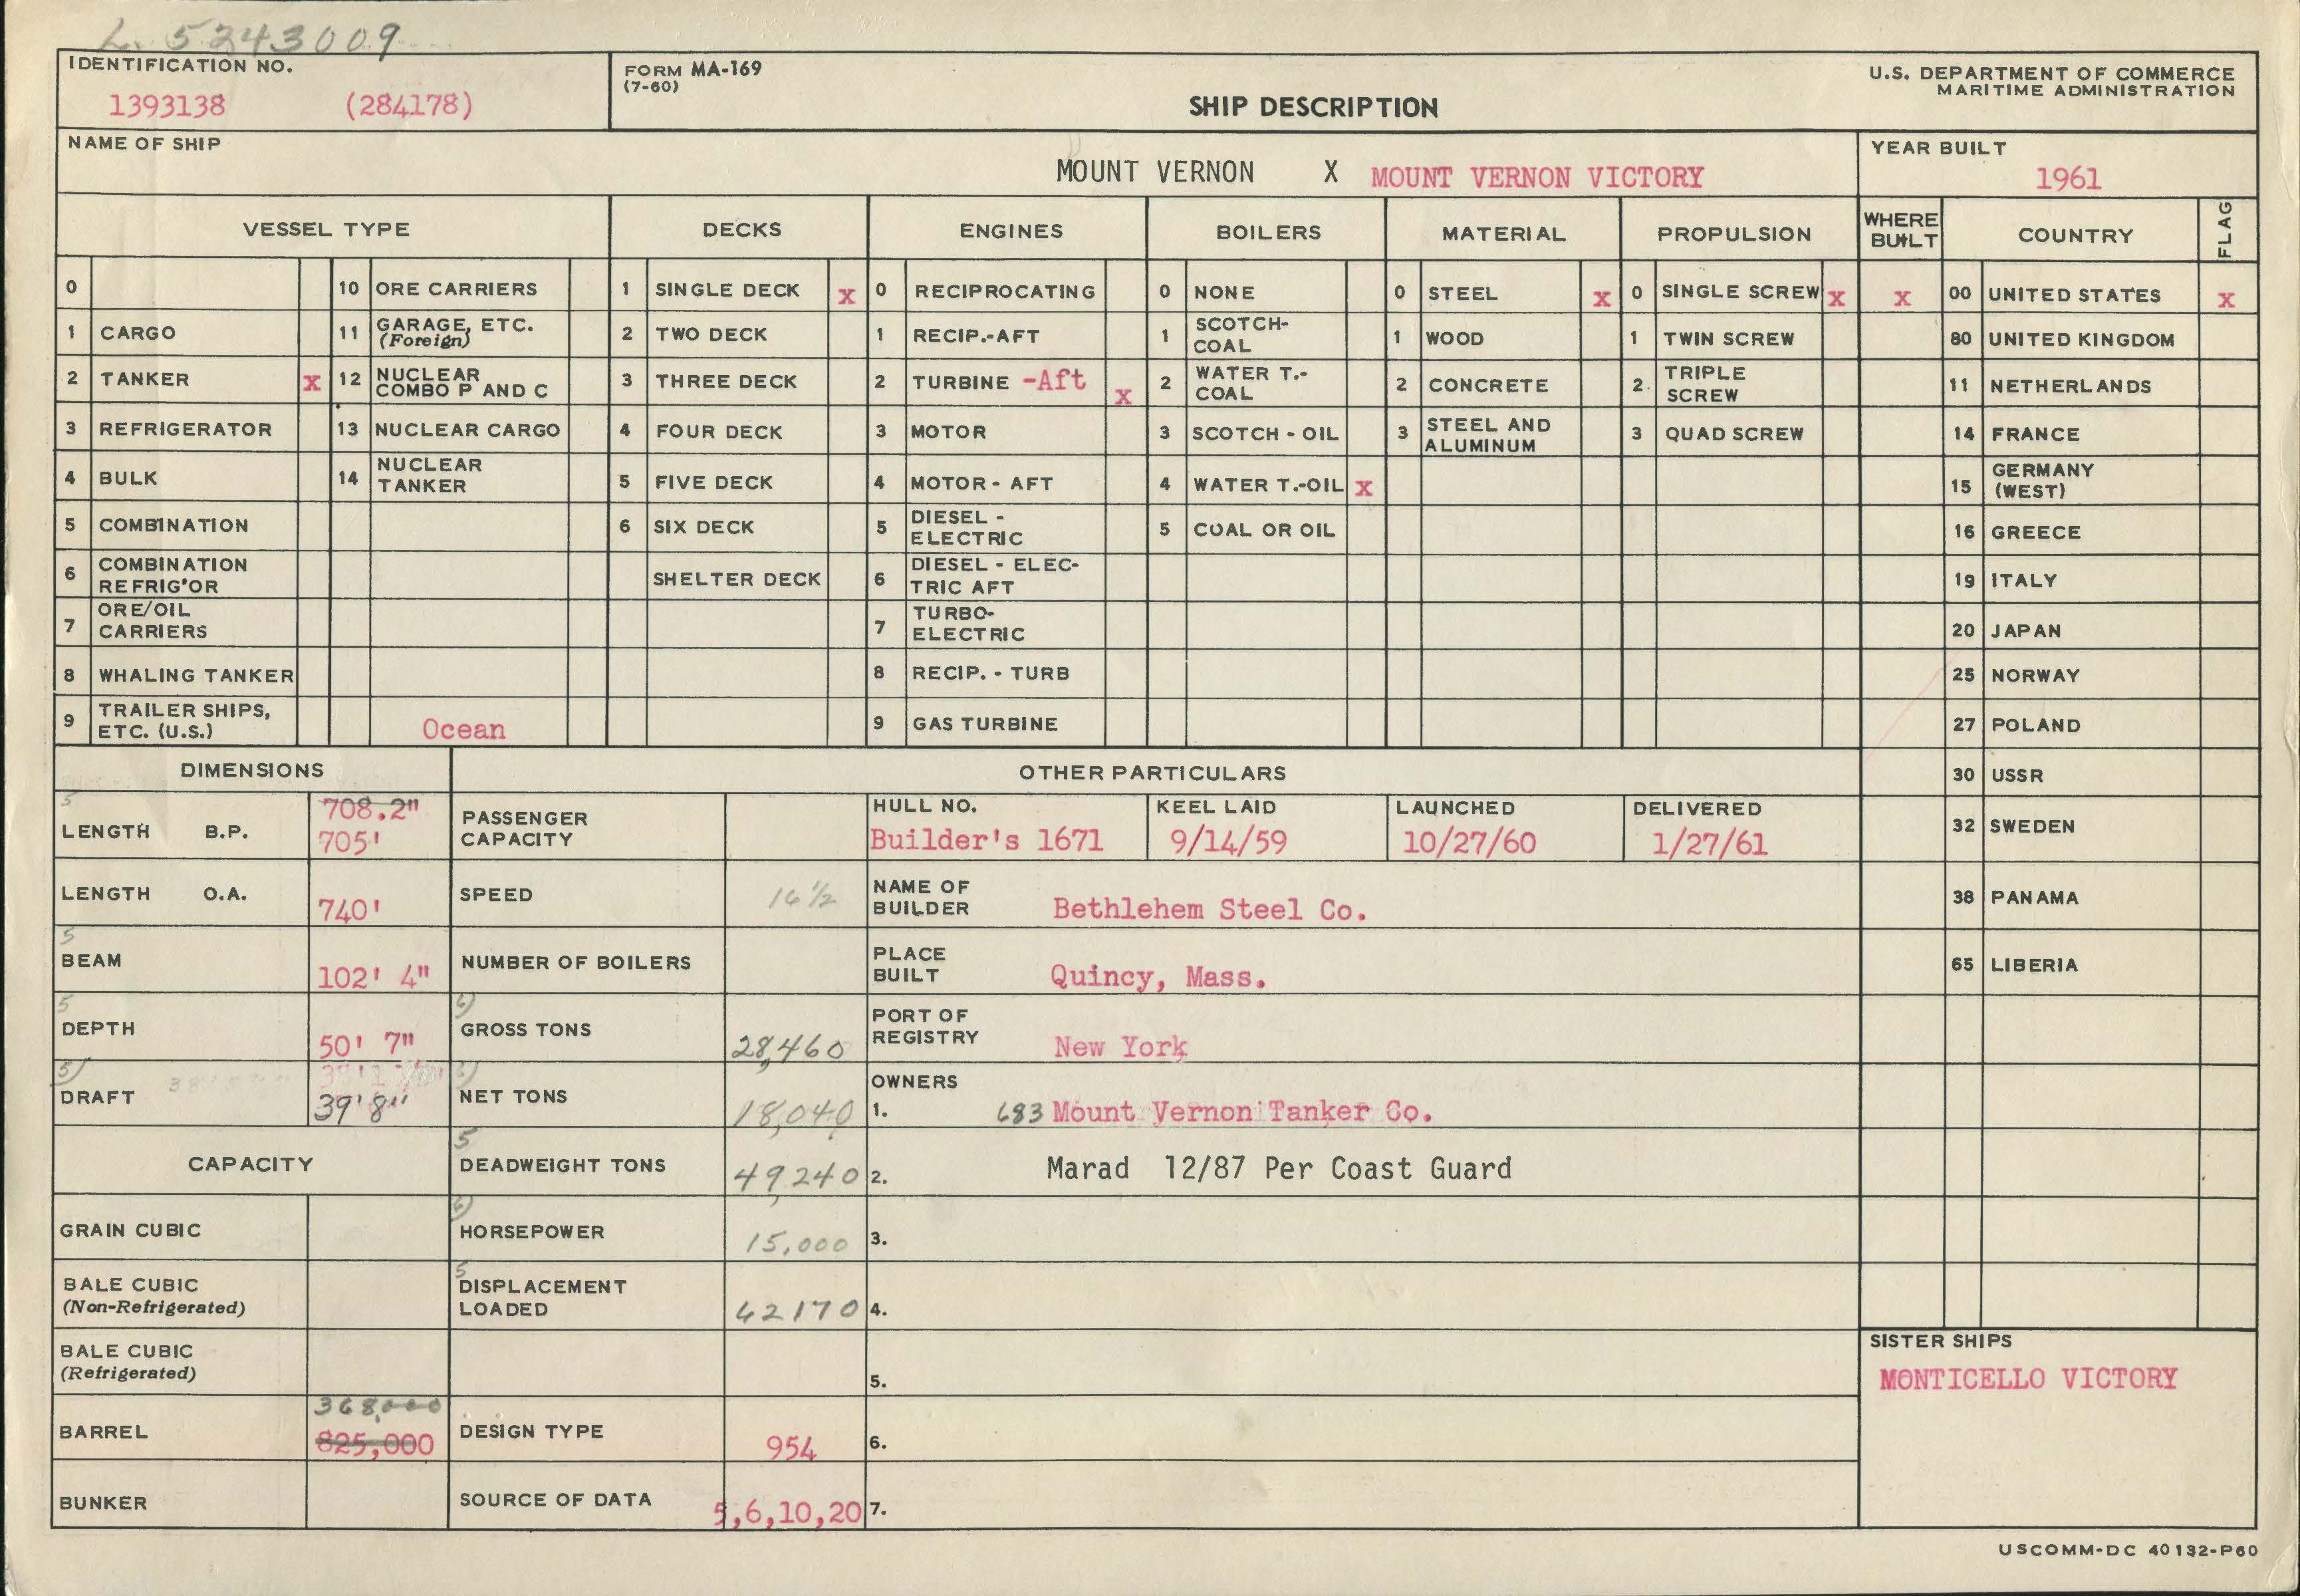 L. 5243009
IDENTIFICATION NO.
1393138 (284178)
FORM MA-169
(7-60)
SHIP DESCRIPTION
U.S. DEPARTMENT OF COMMERCE
MARITIME ADMINISTRATION
NAME OF SHIP
MOUNT VERNON X MOUNT VERNON VICTORY
YEAR BUILT
1961
VESSEL TYPE DECKS ENGINES BOILERS MATERIAL PROPULSION WHERE BUILT COUNTRY FLAG
0 10 ORE CARRIERS 1 SINGLE DECK x 0 RECIPROCATING 0 NONE 0 STEEL x 0 SINGLE SCREW x x 00 UNITED STATES x
1 CARGO 11 GARAGE, ETC. (Foreign) 2 TWO DECK 1 RECIP.-AFT 1 SCOTCH-COAL 1 WOOD 1 TWIN SCREW 80 UNITED KINGDOM
2 TANKER x 12 NUCLEAR COMBO P AND C 3 THREE DECK 2 TURBINE -Aft x 2 WATER T.-COAL 2 CONCRETE 2 TRIPLE SCREW 11 NETHERLANDS
3 REFRIGERATOR 13 NUCLEAR CARGO 4 FOUR DECK 3 MOTOR 3 SCOTCH - OIL 3 STEEL AND ALUMINUM 3 QUAD SCREW 14 FRANCE
4 BULK 14 NUCLEAR TANKER 5 FIVE DECK 4 MOTOR - AFT 4 WATER T.-OIL x 15 GERMANY (WEST)
5 COMBINATION 6 SIX DECK 5 DIESEL - ELECTRIC 5 COAL OR OIL 16 GREECE
6 COMBINATION REFRIG'OR SHELTER DECK 6 DIESEL - ELECTRIC AFT 19 ITALY
7 ORE/OIL CARRIERS 7 TURBO-ELECTRIC 20 JAPAN
8 WHALING TANKER 8 RECIP. - TURB 25 NORWAY
9 TRAILER SHIPS, ETC. (U.S.) Ocean 9 GAS TURBINE 27 POLAND
30 USSR
32 SWEDEN
38 PANAMA
65 LIBERIA
DIMENSIONS
5
LENGTH B.P. 708.2" 705'
LENGTH O.A. 740'
5
BEAM 102' 4"
5
DEPTH 50' 7"
5)
DRAFT 39'8"
CAPACITY
GRAIN CUBIC
BALE CUBIC
(Non-Refrigerated)
BALE CUBIC
(Refrigerated)
BARREL 368,000 825,000
BUNKER
OTHER PARTICULARS
PASSENGER CAPACITY
SPEED 16 1/2
NUMBER OF BOILERS
6)
GROSS TONS 28,460
NET TONS 18,040
5
DEADWEIGHT TONS 49,240
6)
HORSEPOWER 15,000
5
DISPLACEMENT LOADED 62170
DESIGN TYPE 954
SOURCE OF DATA 5,6,10,20
HULL NO. KEEL LAID LAUNCHED DELIVERED
Builder's 1671 9/14/59 10/27/60 1/27/61
NAME OF BUILDER Bethlehem Steel Co.
PLACE BUILT Quincy, Mass.
PORT OF REGISTRY New York
OWNERS
1. 683 Mount Vernon Tanker Co.
2. Marad 12/87 Per Coast Guard
3.
4.
5.
6.
7.
SISTER SHIPS
MONTICELLO VICTORY
USCOMM-DC 40132-P60